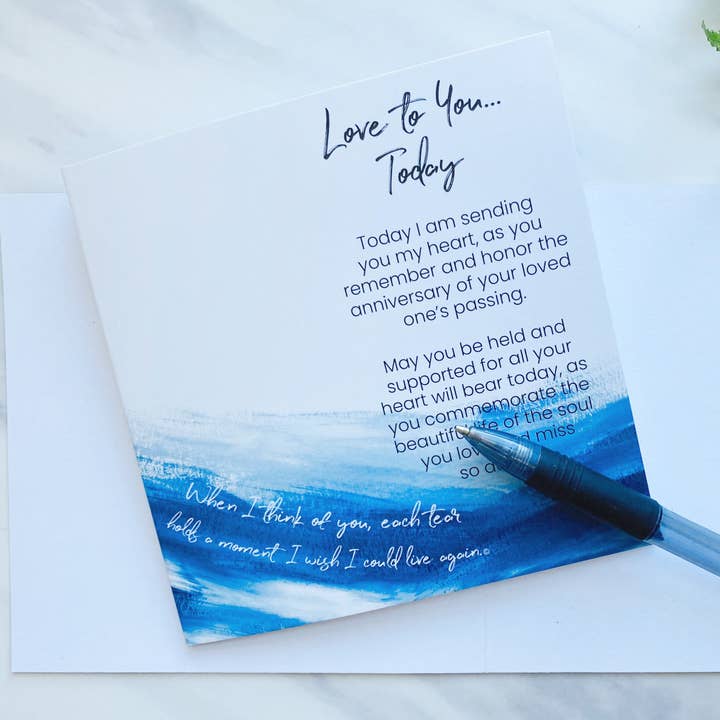 Love to You...
Today
Today I am sending
you my heart, as you
remember and honor the
anniversary of your loved
one's passing.
May you be held and
supported for all your
heart will bear today, as
you commemorate the
beautiful life of the soul
you miss
so
When I think of you, each tear
holds a moment I wish I could live again.©